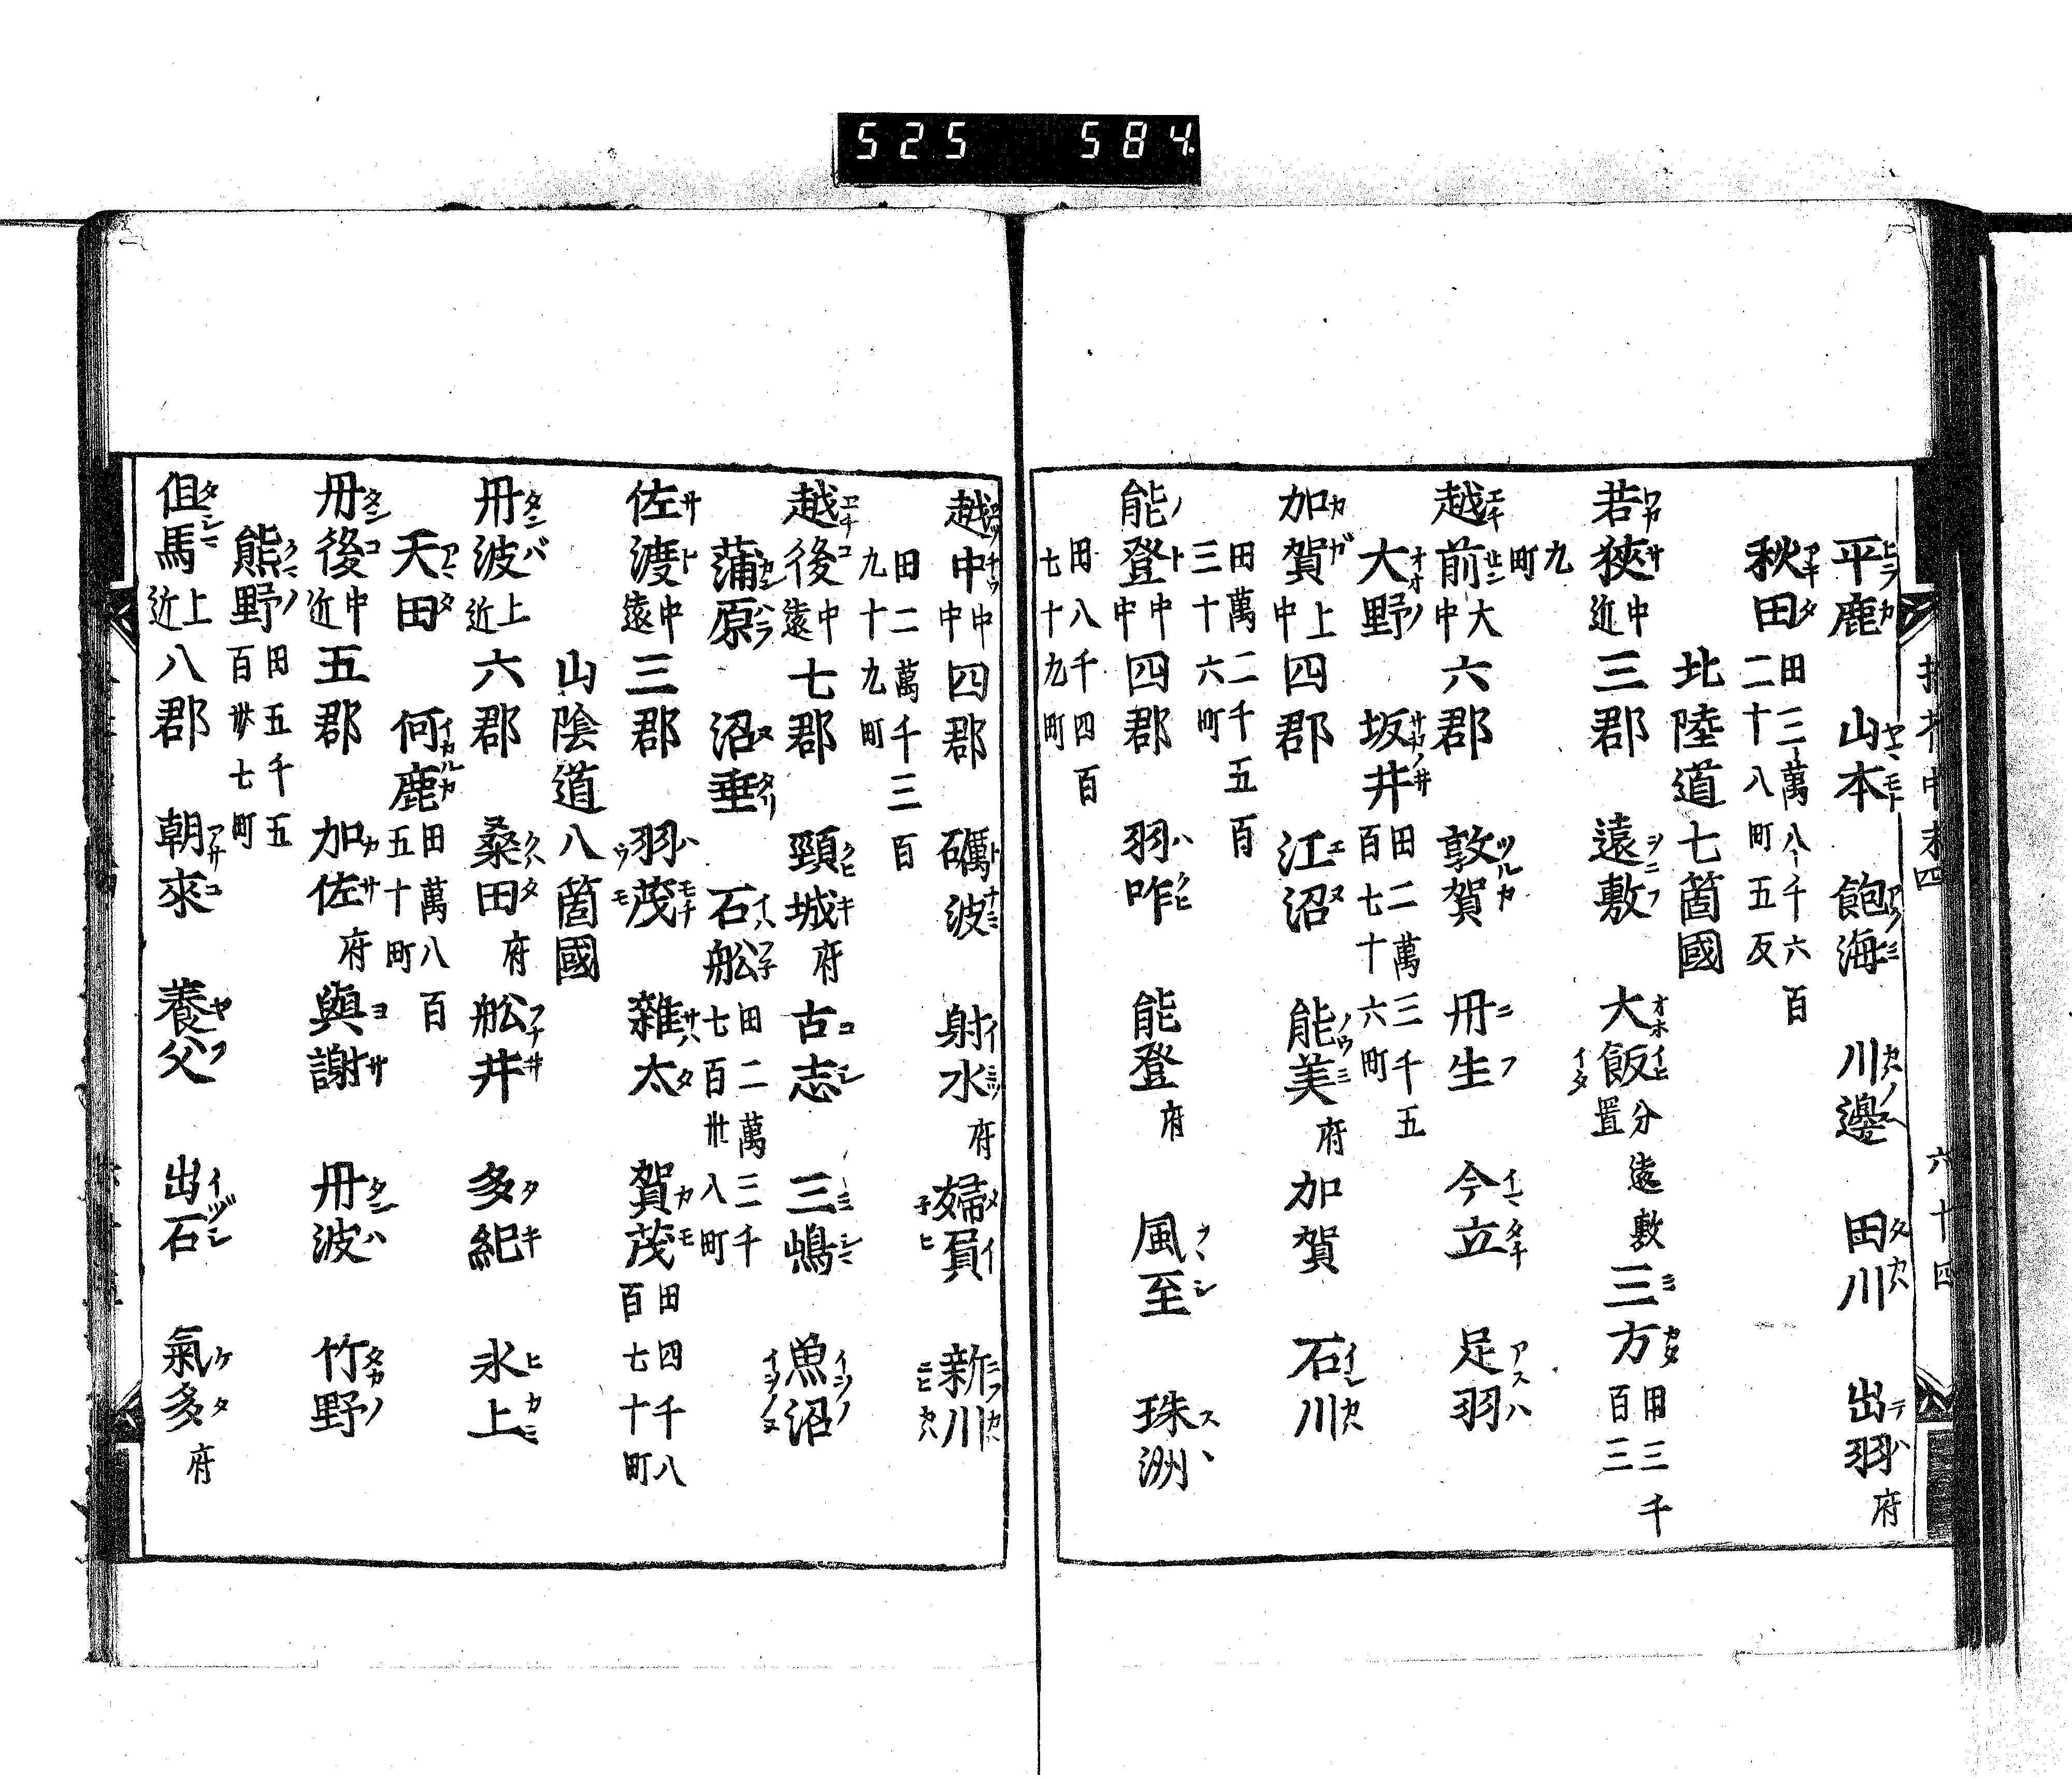 525 584
平鹿 山本 飽海 川邊 田川 出羽府
秋田 田三萬八千六百二十八町五反
北陸道七箇國
若狹中近三郡 遠敷 大飯分置遠敷 三方田三千百三
九町
越前大中六郡 敦賀 丹生 今立 足羽
大野 坂井田二萬三千五百七十六町
加賀上中四郡 江沼 能美府 加賀 石川
田萬二千五百三十六町
能登中中四郡 羽咋 能登府 風至 珠洲
田八千四百七十九町
越中中中四郡 礪波 射水府 婦負 新川
田二萬千三百九十九町
越後中遠七郡 頸城府 古志 三嶋 魚沼
蒲原 沼垂 石舩田二萬三千七百卅八町
佐渡中遠三郡 羽茂 雜太 賀茂田四千八百七十町
山陰道八箇國
丹波上近六郡 桑田府 舩井 多紀 氷上
天田 何鹿田萬八百五十町
丹後中近五郡 加佐府 與謝 丹波 竹野
熊野田五千五百卅七町
但馬上近八郡 朝來 養父 出石 氣多府